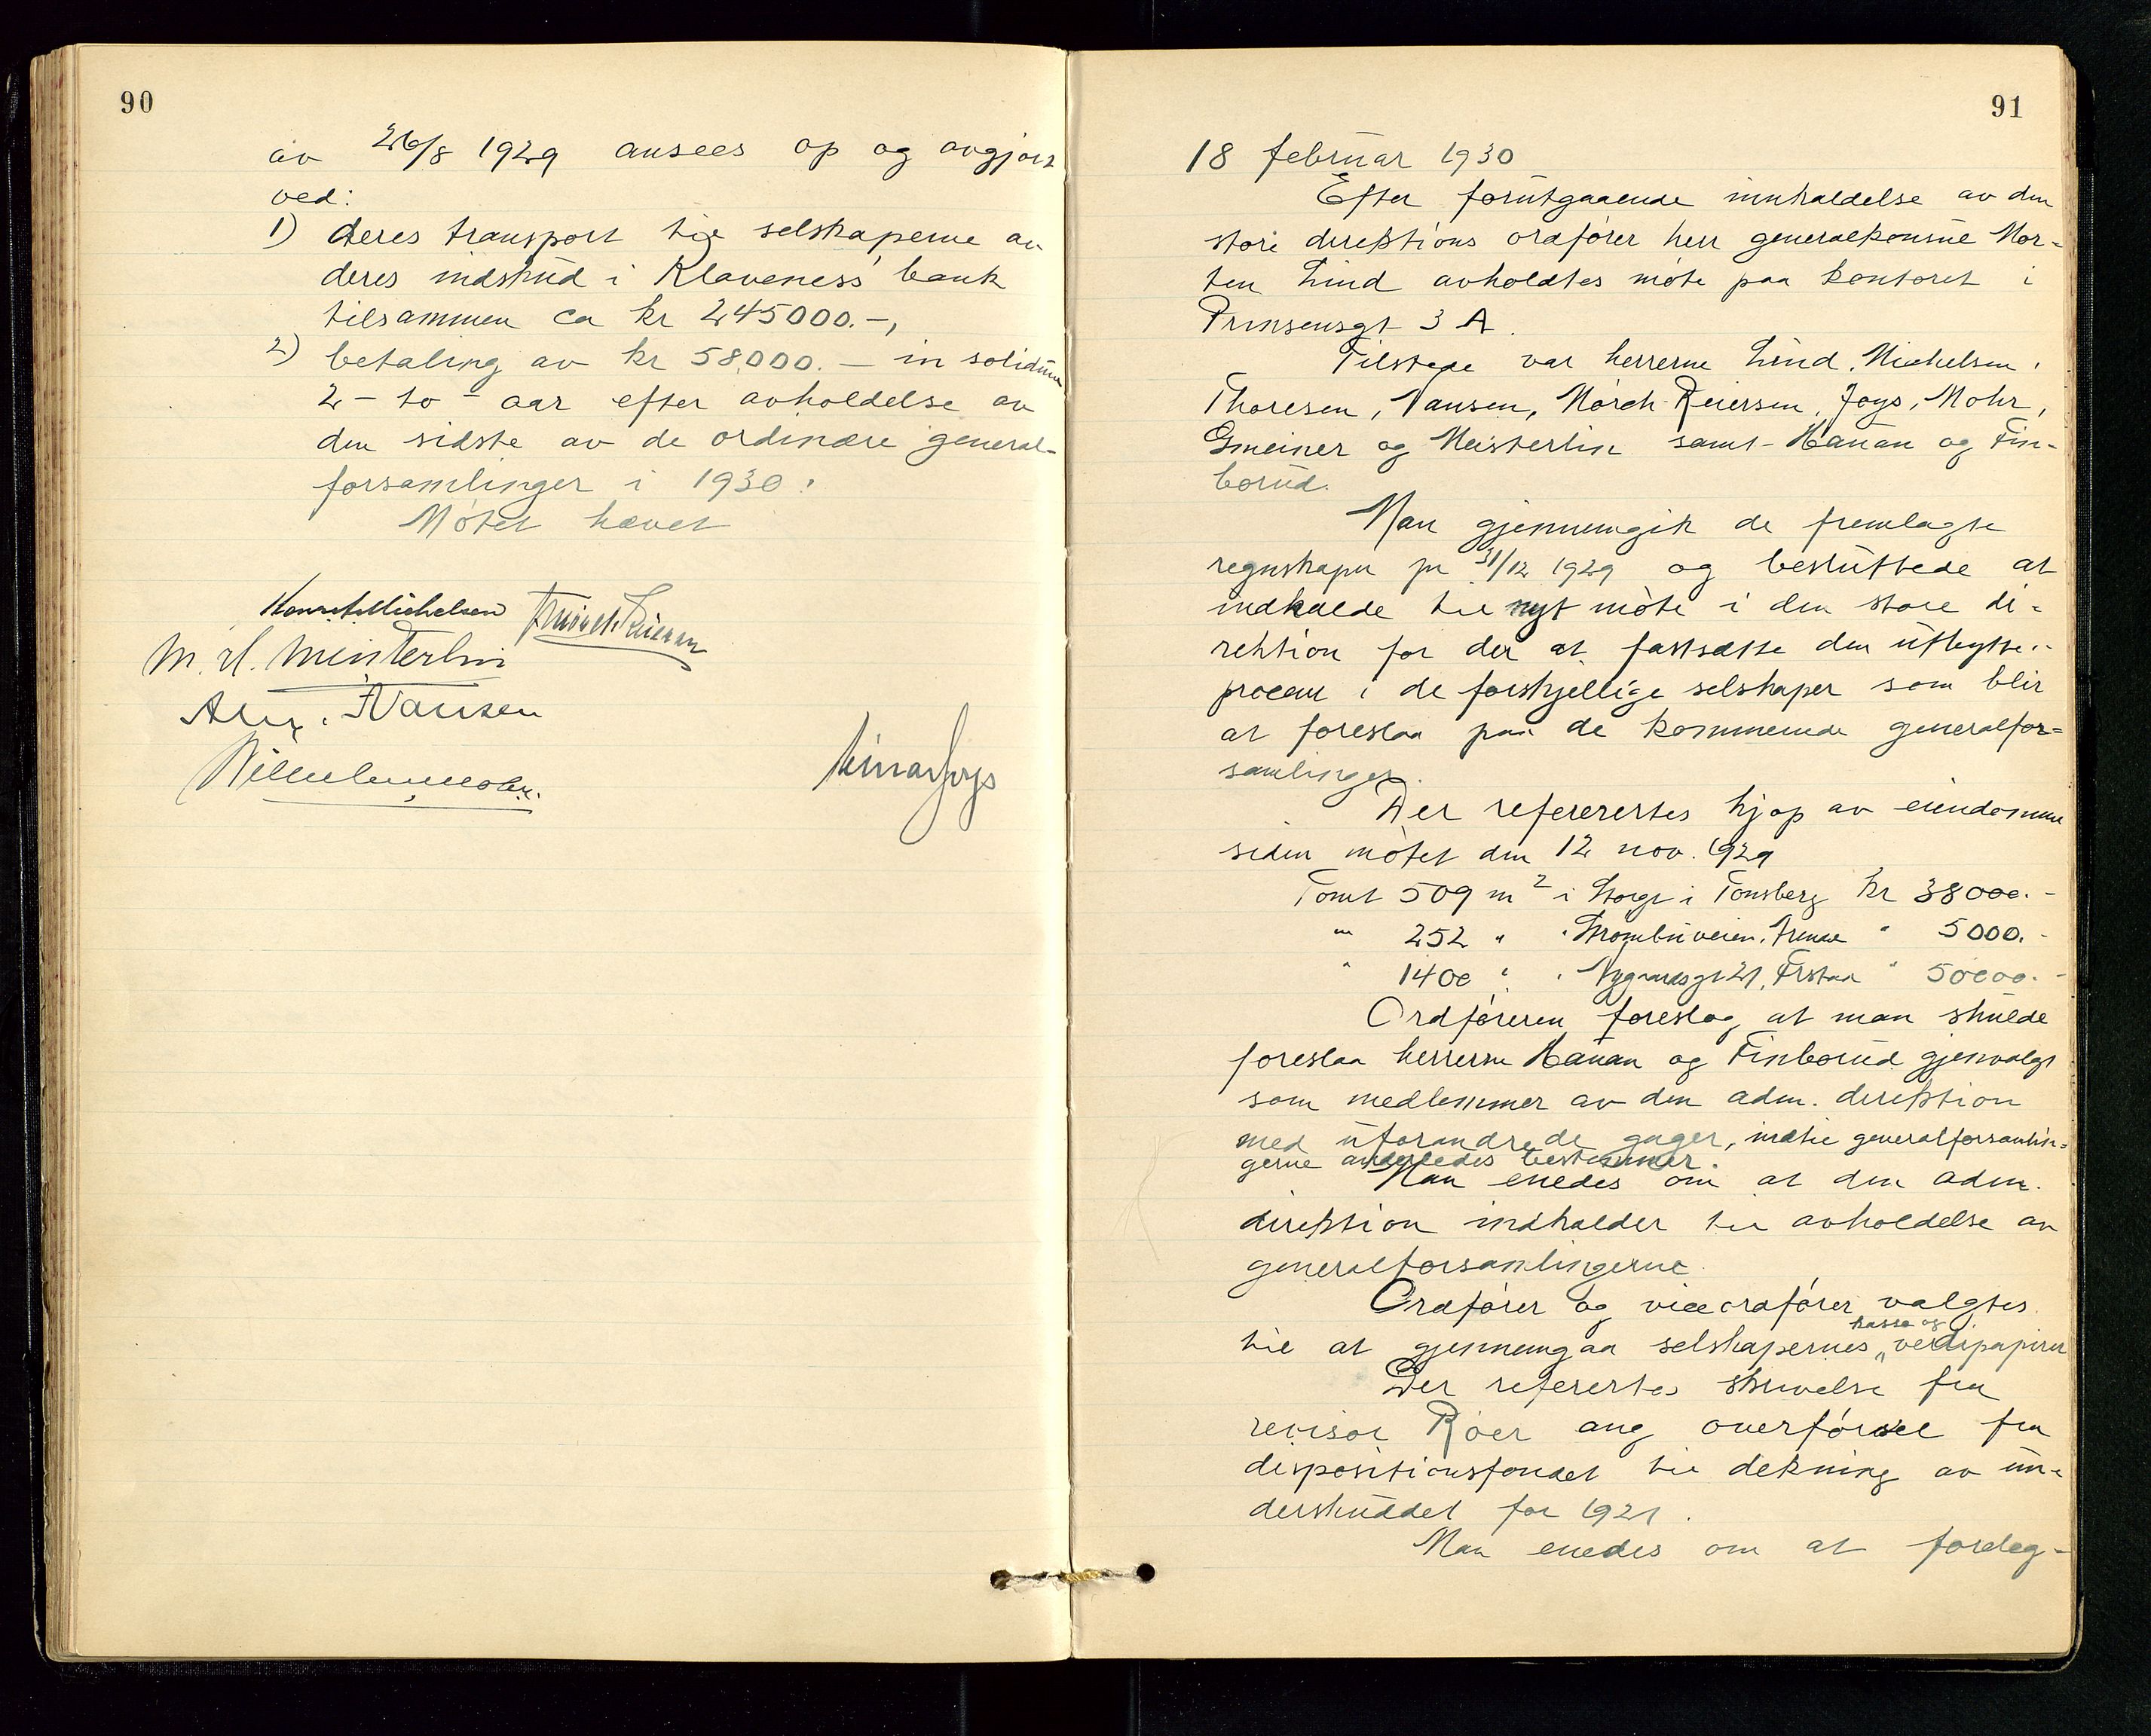 90
av 26/8 1929 ansees op og avgjort
ved:
1) deres transport til selskaperne av
deres indskud i Klaveness' bank
tilsammen ca kr 245000.-,
2) betaling av kr 58.000.- in solidum
2 - to - aar efter avholdelse av
den sidste av de ordinære general-
forsamlinger i 1930.
Møtet hævet
Konr. Michelsen
M. H. Meisterlin
F. Nansen
Wilhelm Mohr.
Einar Joys
91
18 februar 1930
Efter forutgaaende innkaldelse av den
store direktions ordfører herr generalkonsul Mor-
ten Lind avholdtes møte paa kontoret i
Prinsensgt 3 A.
Tilstede var herrerne Lind, Michelsen,
Thoresen, Nansen, Mørch-Reiersen, Joys, Mohr,
Gmeiner og Meisterlin samt Hauan og Fin-
borud.
Man gjennemgik de fremlagte
regnskaper pr 31/12 1929 og besluttede at
indkalde til nyt møte i den store di-
rektion for der at fastsætte den utbytte-
procent i de forskjellige selskaper som blir
at foreslaa paa de kommende generalfor-
samlinger.
Der refererertes kjøp av eiendomme
siden møtet den 12 nov. 1929
Tomt 509 m2 i Storgt i Tønsberg kr 38000.-
" 252 " " Strømbuveien, Arendal " 5000.-
" 1400 " " Nygaardsgt 21, Frstad " 50000.-
Ordføreren foreslog at man skulde
foreslaa herrerne Hauan og Finborud gjenvalgt
som medlemmer av den adm. direktion
med uforandrede gager, indtil generalforsamlin-
gerne anderledes bestemmer.
Man enedes om at den adm.
direktion indkalder til avholdelse av
generalforsamlingerne.
Ordfører og viceordfører valgtes
kasse og
til at gjennemgaa selskapernes "verdipapirer
Der refererertes skrivelse fra
revisor Røer ang overførsel fra
dispositionsfondet til dekning av un-
derskuddet for 1921.
Man enedes om at foreleg-